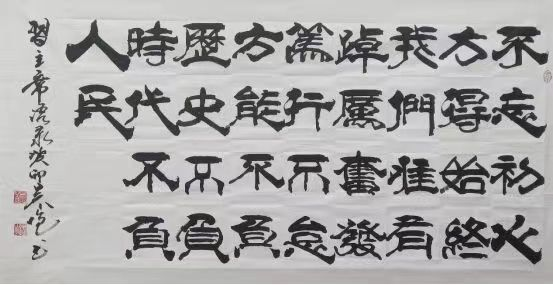 不忘初心
方得始終
我們唯有
踔厲奮發
篤行不怠
方能不負
歷史不負
時代不負
人民
習主席语录癸卯书